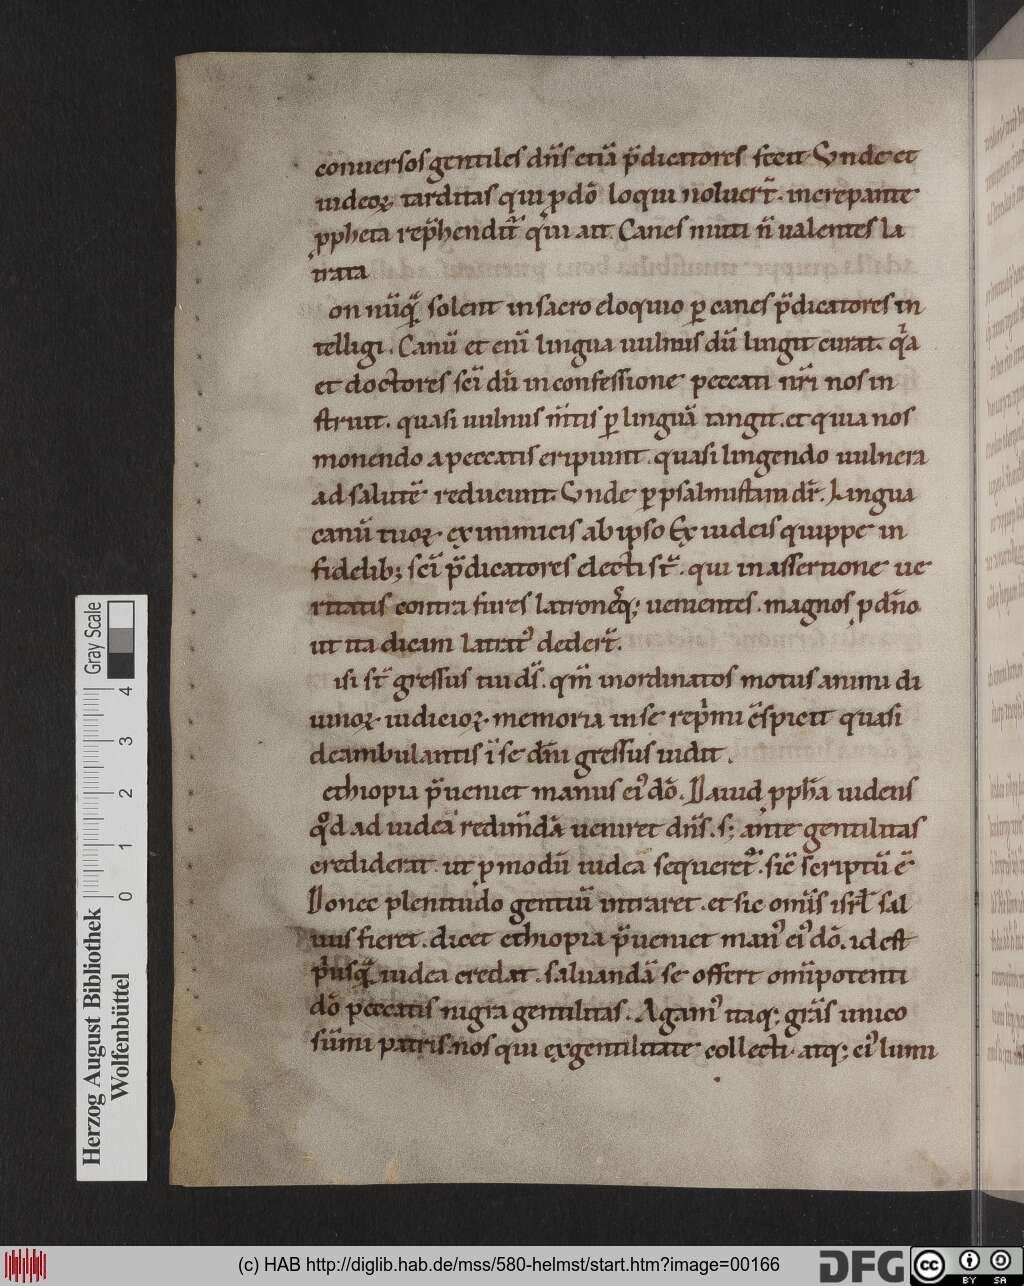 conuersos gentiles dn̄s etiā p̄dicatores fecit. Unde et
iudeoꝝ tarditas qui ꝓ dō loqui noluer̄. increpante
ꝓpheta rep̄hendit̄ qui ait. Canes muti n̄ ualentes la
trare
on nūqꝫ solent in sacro eloquio ꝑ canes p̄dicatores in
telligi. Canū et enī lingua uulnus dū lingit curat. qͥa
et doctores scī dū in confessione peccati nr̄i nos in
struit. quasi uulnus m̄tis ꝑ linguā tangit. et quia nos
monendo a peccatis eripiunt. quasi lingendo uulnera
ad salutē reducunt. Unde ꝑ psalmistam dr̄. Lingua
canū tuoꝝ. ex inimicis ab ipso Ex iudeis quippe in
fidelibꝫ scī p̄dicatores electi st̄. qui in assertione ue
ritatis contra fures latronesqꝫ uenientes. magnos ꝓ dn̄o
ut ita dicam latratꝰ deder̄.
isi st̄ gressus tui ds̄. qm̄ inordinatos motus animi di
uinoꝝ iudicioꝝ memoria in se rep̄mi c̄spicit quasi
deambulantis ī se dn̄i gressus uidit.
ethiopia p̄ueniet manus eiꝰ dō. Dauid ꝓph̄a uidens
qͦd ad iudeā redimēdā ueniret dn̄s. sꝫ ante gentilitas
crediderat. ut ꝓ modū iudea sequeret̄. sic̄ scriptū ē
Donec plenitudo gentiū intraret. et sic omīs isrl̄ sal
uus fieret. dicet ethiopia p̄ueniet manꝰ eiꝰ dō. id est
pͥusqꝫ iudea credat. saluandā se offert omīpotenti
dō peccatis nigra gentilitas. Agamꝰ itaqꝫ grās unico
sūmi patris. nos qui ex gentilitate collecti. atqꝫ eiꝰ lumi
Gray Scale
4 3 2 1 0
Herzog August Bibliothek
Wolfenbüttel
(c) HAB http://diglib.hab.de/mss/580-helmst/start.htm?image=00166
DFG
cc
BY SA